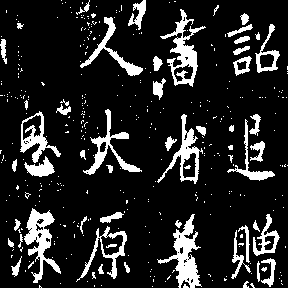 詔追贈
書省
人太原
恩